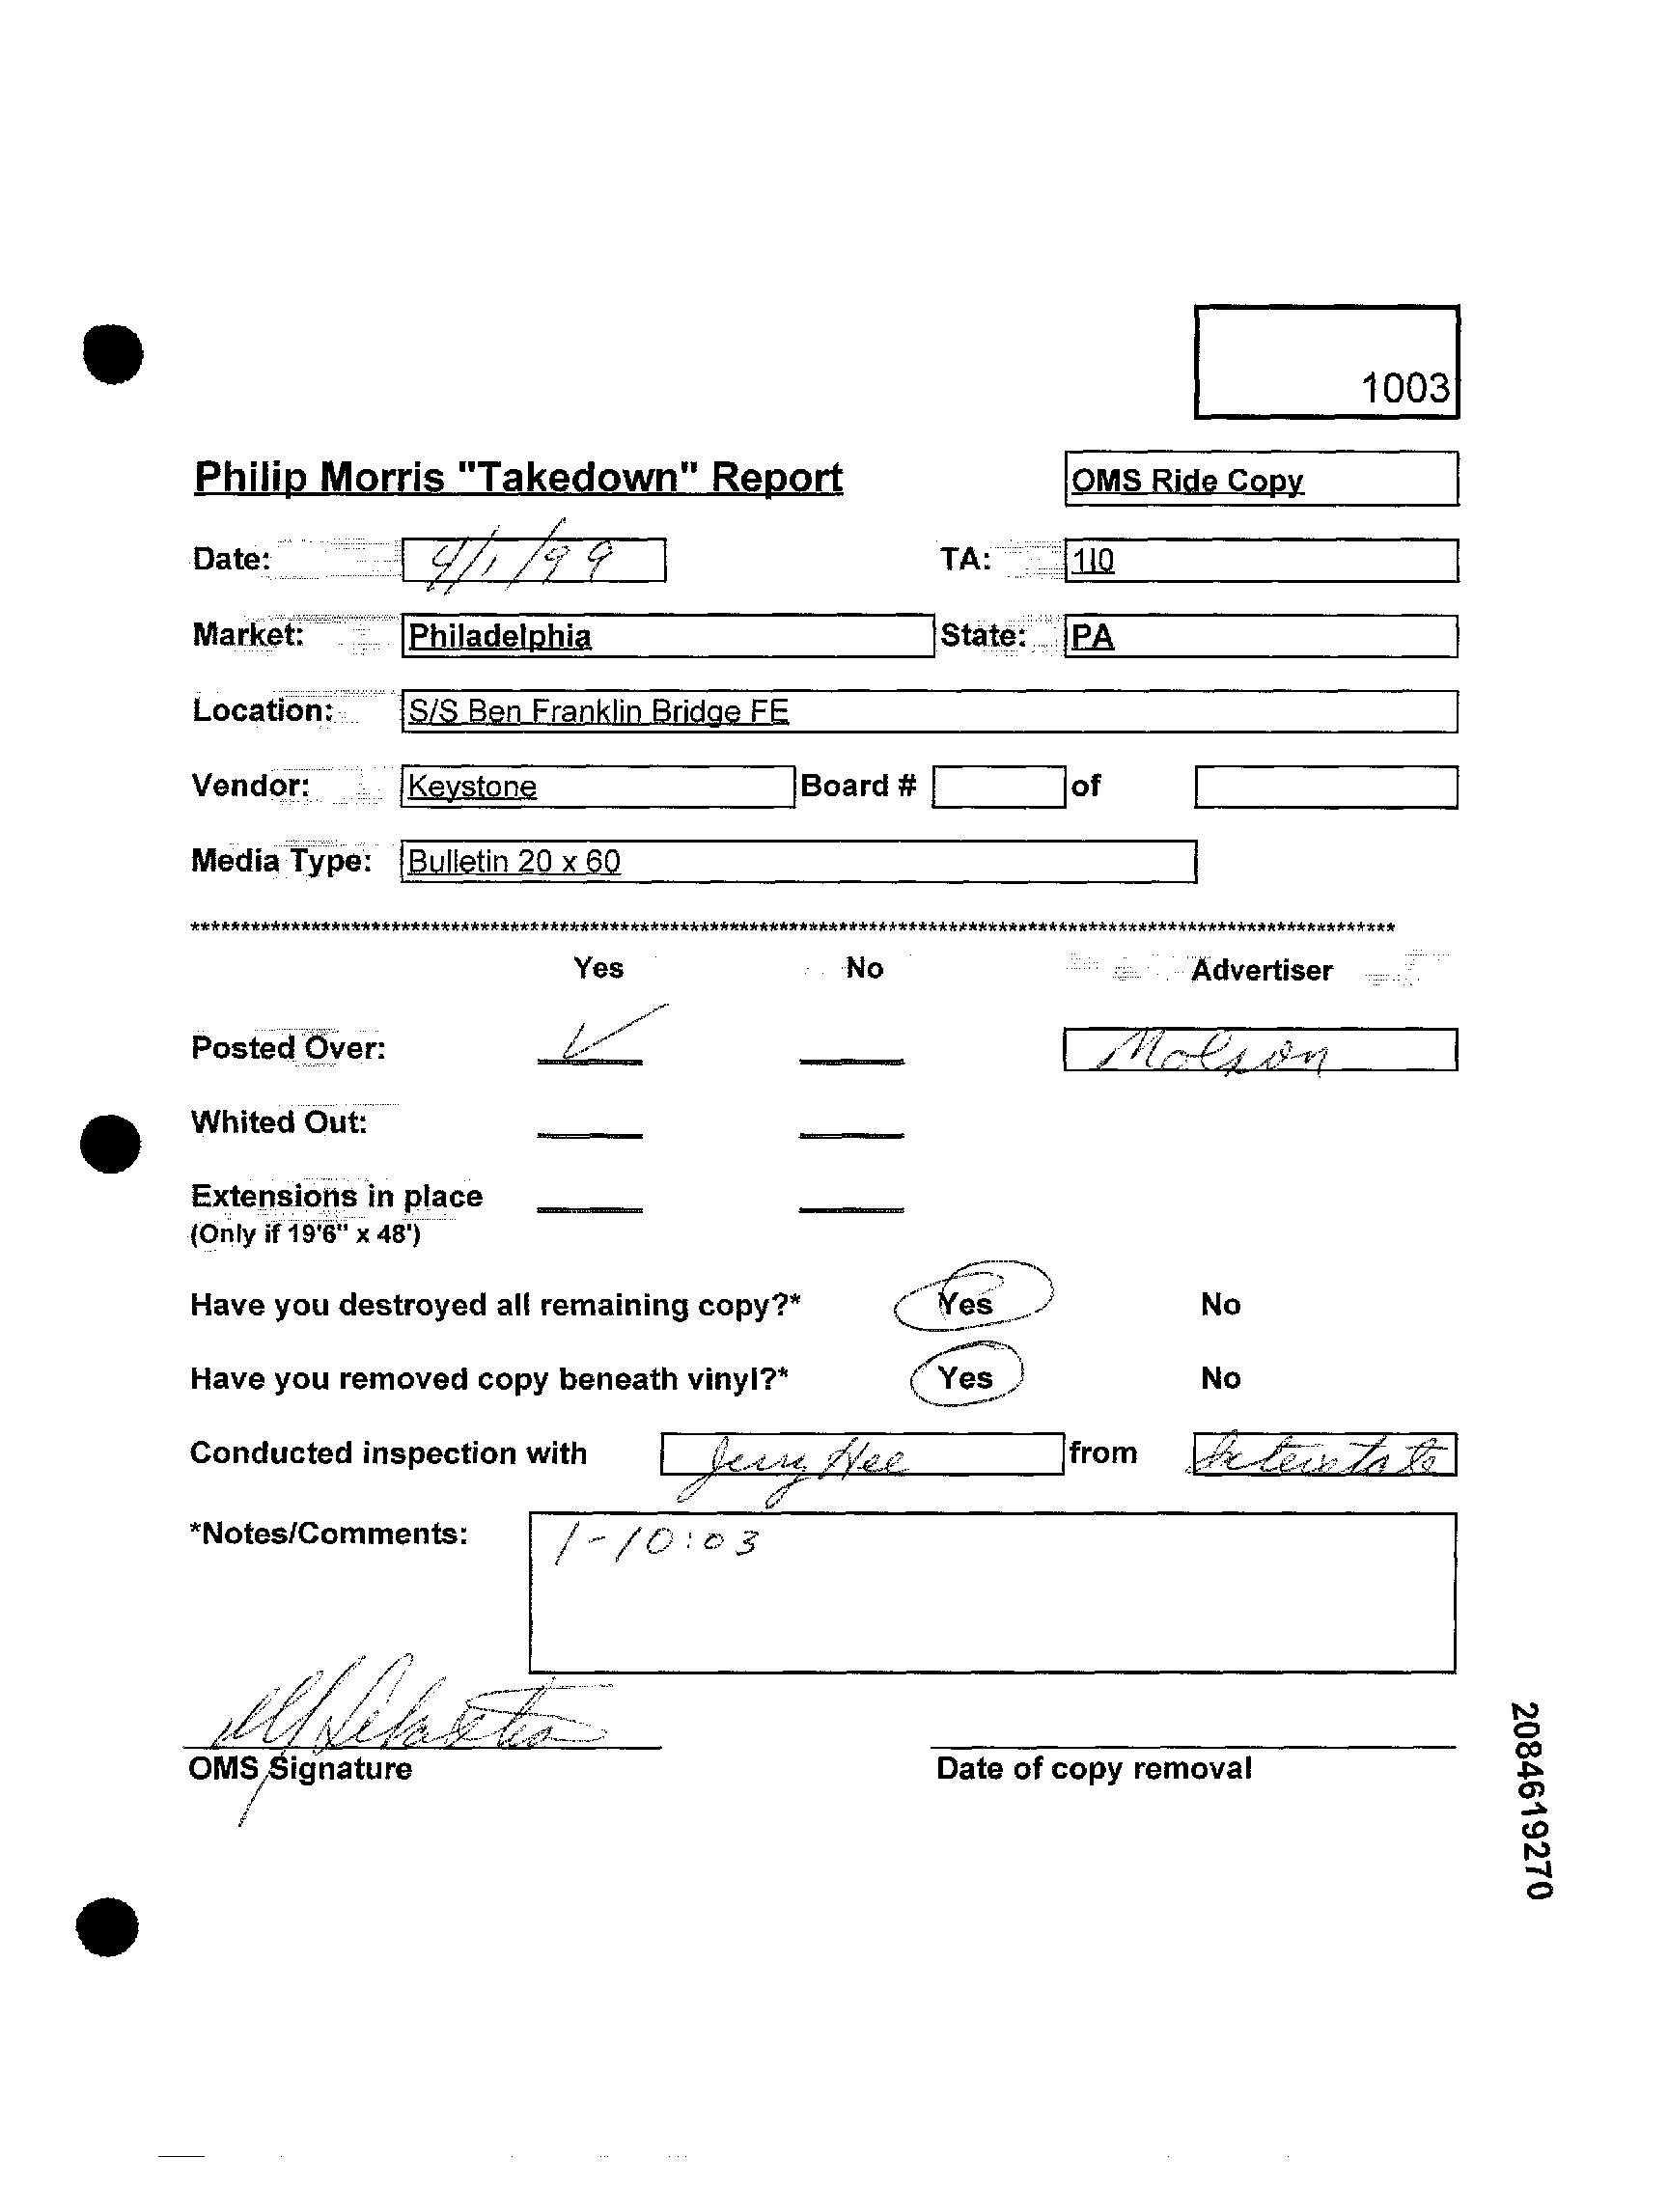 1003
Philip Morris "Takedown" Report OMS Ride Copy
Date: 4/1/99 TA: 110
Market: Philadelphia State: PA
Location: S/S Ben Franklin Bridge FE
Vendor: Keystone Board # of
Media Type: Bulletin 20 x 60
************************************************************************************************************************
Yes No Advertiser
Posted Over: ✓ Molson
Whited Out:
Extensions in place
(Only if 19'6" x 48')
Have you destroyed all remaining copy?* Yes No
Have you removed copy beneath vinyl?* Yes No
Conducted inspection with Jerry from Interstate
*Notes/Comments: 1-10:03
OMS Signature Date of copy removal
2084619270